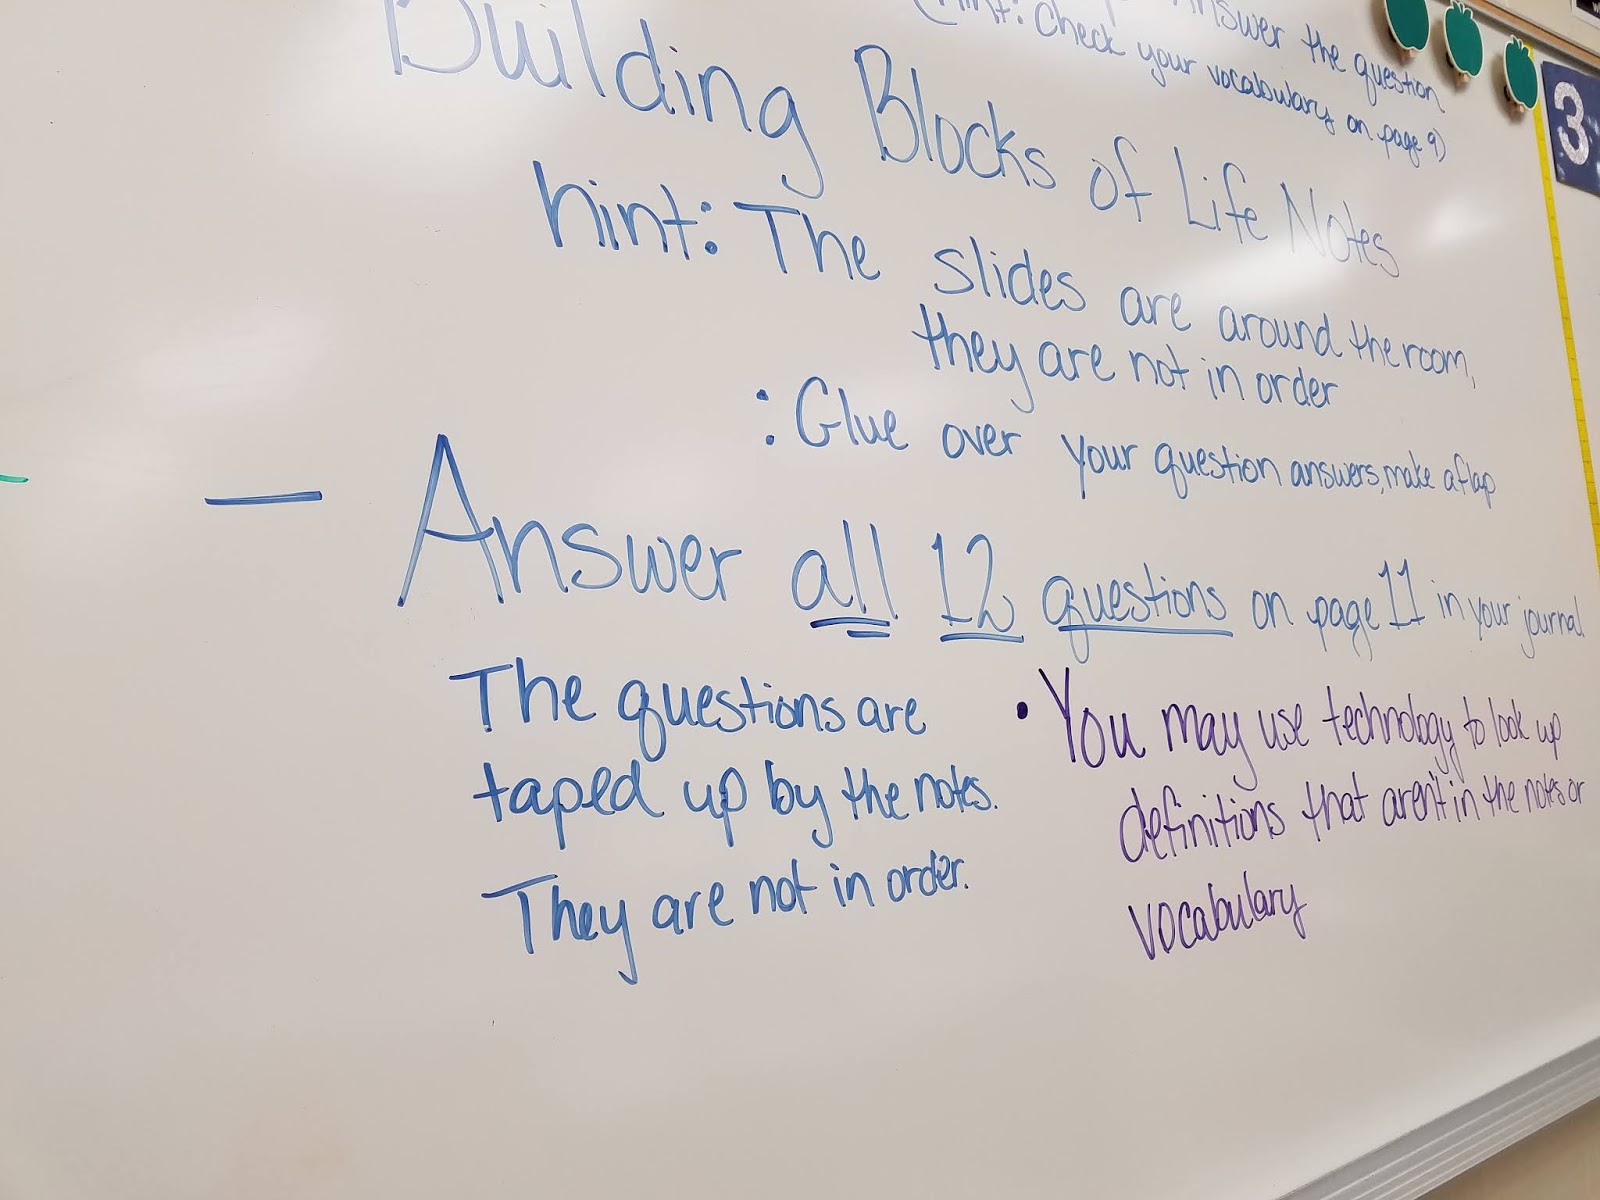 Answer the question
(hint: check your vocabulary on page 9)
Building Blocks of Life Notes
hint: The slides are around the room,
they are not in order
: Glue over your question answers, make a flap
— Answer all 12 questions on page 11 in your journal
The questions are
taped up by the notes.
They are not in order.
• You may use technology to look up
definitions that aren't in the notes or
vocabulary
3